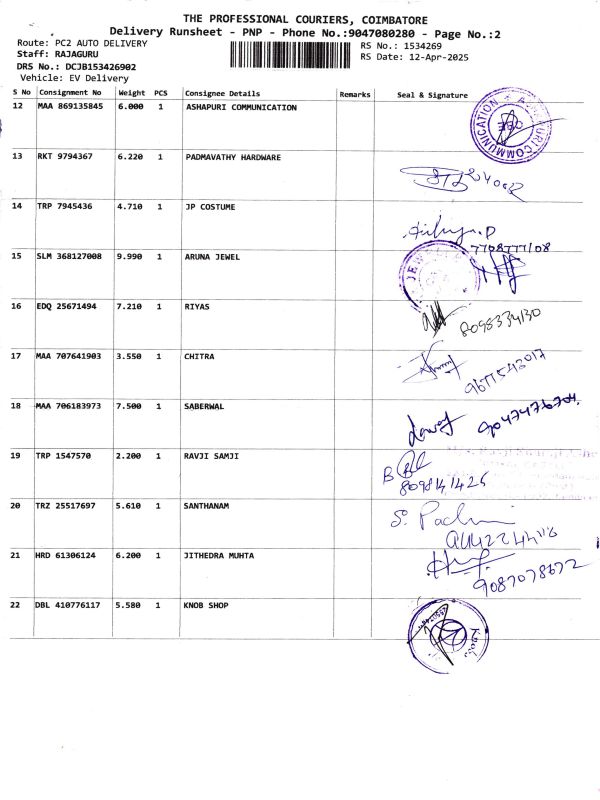 THE PROFESSIONAL COURIERS, COIMBATORE
Delivery Runsheet - PNP - Phone No.:9047080280 - Page No.:2
Route: PC2 AUTO DELIVERY
RS No.: 1534269
Staff: RAJAGURU
RS Date: 12-Apr-2025
DRS No.: DCJB153426902
Vehicle: EV Delivery
S No Consignment No Weight PCS Consignee Details Remarks Seal & Signature
12 MAA 869135845 6.000 1 ASHAPURI COMMUNICATION
COMMUNICATION
CBE
13 RKT 9794367 6.220 1 PADMAVATHY HARDWARE
14 TRP 7945436 4.710 1 JP COSTUME
15 SLM 368127008 9.990 1 ARUNA JEWEL
16 EDQ 25671494 7.210 1 RIYAS
8098334130
17 MAA 707641903 3.550 1 CHITRA
18 MAA 706183973 7.500 1 SABERWAL
19 TRP 1547570 2.200 1 RAVJI SAMJI
20 TRZ 25517697 5.610 1 SANTHANAM
21 HRD 61306124 6.200 1 JITHEDRA MUHTA
22 DBL 410776117 5.580 1 KNOB SHOP